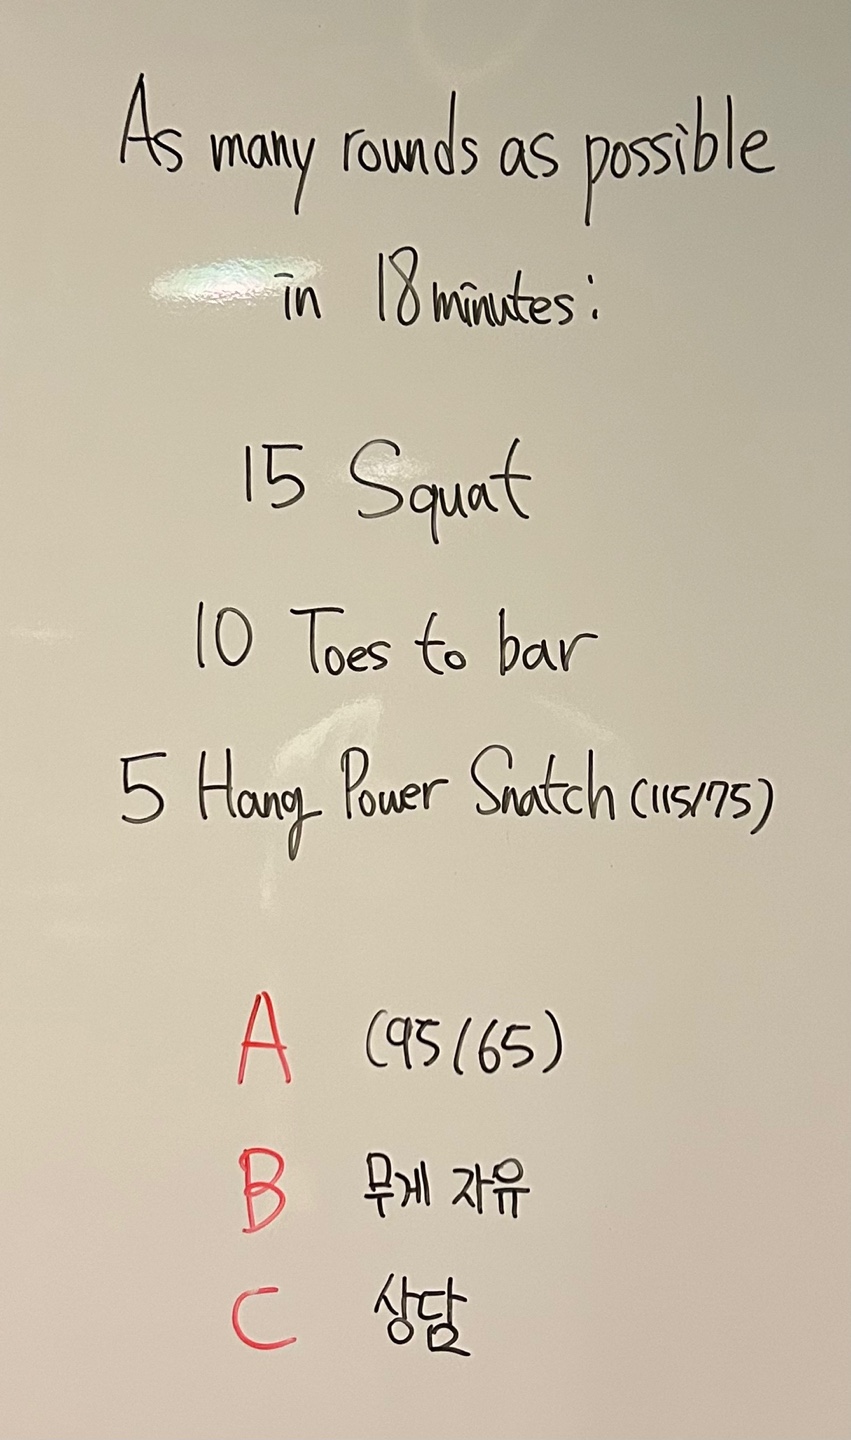 As many rounds as possible
in 18 minutes:
15 Squat
10 Toes to bar
5 Hang Power Snatch (115/75)
A (95/65)
B 무게 자유
C 상담